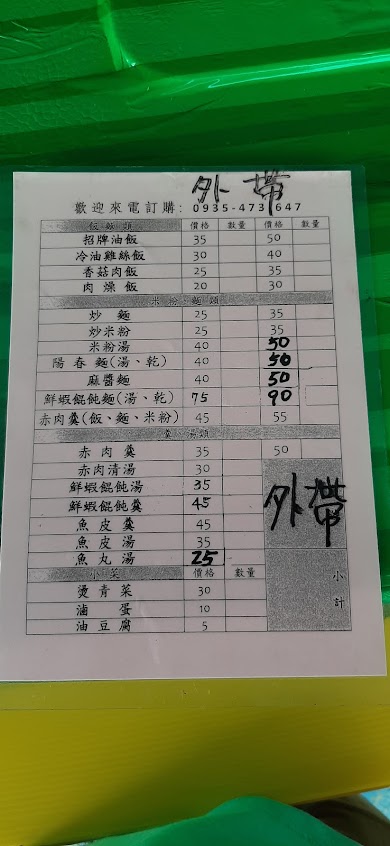 外帶
歡迎來電訂購: 0935-473-647
飯飯類 價格 數量 價格 數量
招牌油飯 35 50
冷油雞絲飯 30 40
香菇肉飯 25 35
肉燥飯 20 30
米粉、麵類
炒麵 25 35
炒米粉 25 35
米粉湯 40 50
陽春麵(湯、乾) 40 50
麻醬麵 40 50
鮮蝦餛飩麵(湯、乾) 75 90
赤肉羹(飯、麵、米粉) 45 55
羹、湯類
赤肉羹 35 50
赤肉清湯 30
鮮蝦餛飩湯 35
鮮蝦餛飩羹 45
外帶
魚皮羹 45
魚皮湯 35
魚丸湯 25
小菜 價格 數量 小計
燙青菜 30
滷蛋 10
油豆腐 5